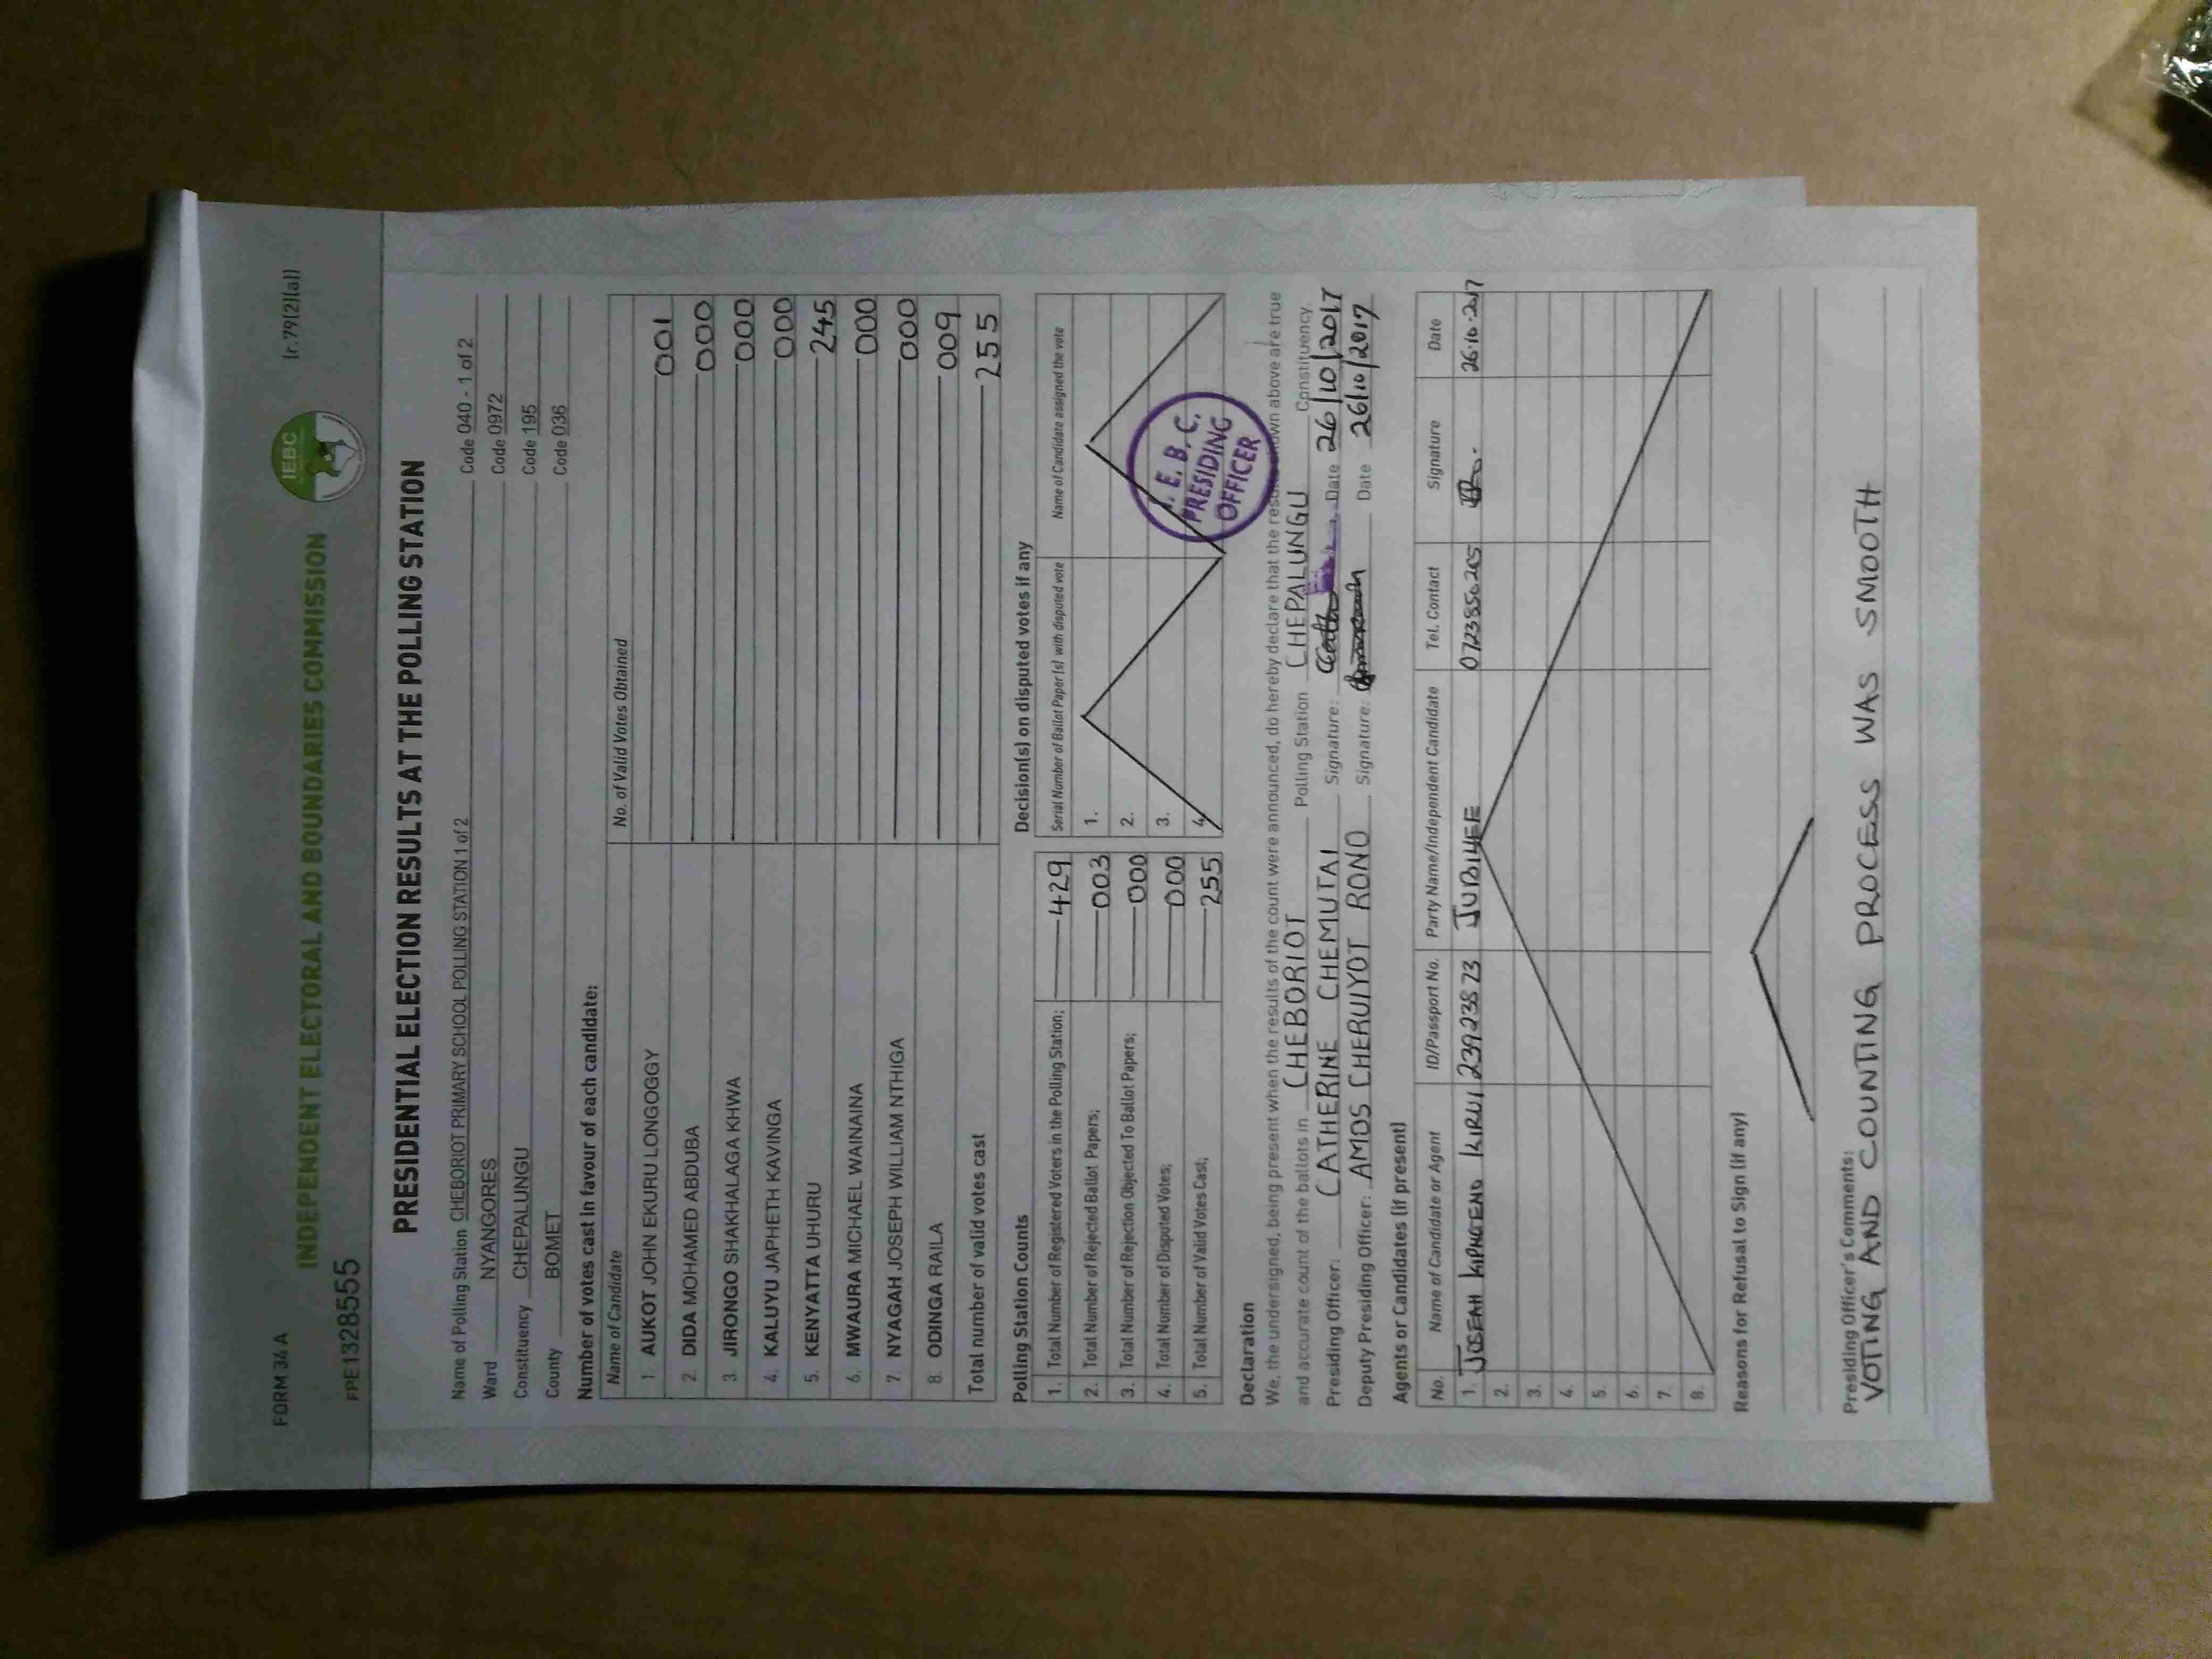 FORM 34 A
(r.79(2)(a))
IEBC
INDEPENDENT ELECTORAL AND BOUNDARIES COMMISSION
FPE1328555
PRESIDENTIAL ELECTION RESULTS AT THE POLLING STATION
Name of Polling Station CHEBORIOT PRIMARY SCHOOL POLLING STATION 1 of 2 Code 040 - 1 of 2
Ward NYANGORES Code 0972
Constituency CHEPALUNGU Code 195
County BOMET Code 036
Number of votes cast in favour of each candidate:
Name of Candidate No. of Valid Votes Obtained
1. AUKOT JOHN EKURU LONGOGGY 001
2. DIDA MOHAMED ABDUBA 000
3. JIRONGO SHAKHALAGA KHWA 000
4. KALUYU JAPHETH KAVINGA 000
5. KENYATTA UHURU 245
6. MWAURA MICHAEL WAINAINA 000
7. NYAGAH JOSEPH WILLIAM NTHIGA 000
8. ODINGA RAILA 009
Total number of valid votes cast 255
Polling Station Counts
1. Total Number of Registered Voters in the Polling Station; 429
2. Total Number of Rejected Ballot Papers; 003
3. Total Number of Rejection Objected To Ballot Papers; 000
4. Total Number of Disputed Votes; 000
5. Total Number of Valid Votes Cast; 255
Decision(s) on disputed votes if any
Serial Number of Ballot Paper (s) with disputed vote Name of Candidate assigned the vote
1.
2.
3.
4.
I. E. B. C.
PRESIDING
OFFICER
Declaration
We, the undersigned, being present when the results of the count were announced, do hereby declare that the results shown above are true
and accurate count of the ballots in CHEBORIOT Polling Station CHEPALUNGU Constituency.
Presiding Officer: CATHERINE CHEMUTAI Signature: Date 26/10/2017
Deputy Presiding Officer: AMOS CHERUIYOT RONO Signature: Date 26/10/2017
Agents or Candidates (if present)
No. Name of Candidate or Agent ID/Passport No. Party Name/Independent Candidate Tel. Contact Signature Date
1. JOSEAH KIPNGENO KIRUI 239238 23 JUBILEE 0723856205 26.10.2017
2.
3.
4.
5.
6.
7.
8.
Reasons for Refusal to Sign (if any)
Presiding Officer's Comments:
VOTING AND COUNTING PROCESS WAS SMOOTH